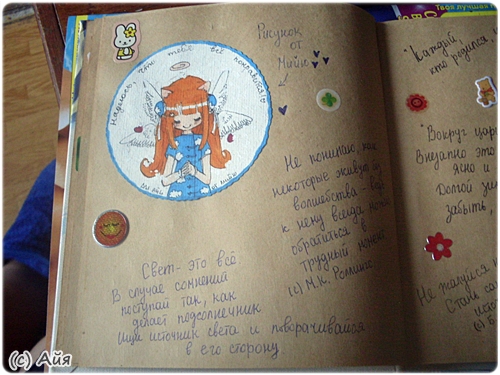 Твоя лучшая
Рисунок
от
Мийю
Надеюсь, что тебе всё понравилось
Не понимаю, как
некоторые живут без
волшебства - ведь
к нему всегда можно
обратиться в
трудный момент
(с) М.К. Роллингс
Свет - это всё
В случае сомнений
поступай так, как
делает подсолнечник
ищи источник света и поворачивайся
в его сторону
"Каждый
кто родился
"Вокруг
Внезапно это
ясно и
Домой
забыть,
Не жалуйся
Стань
(с) Айя